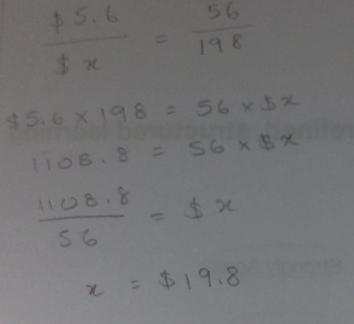 $5.6 / $x = 56 / 198
$5.6 × 198 = 56 × $x
1108.8 = 56 × $x
1108.8 / 56 = $x
x = $19.8